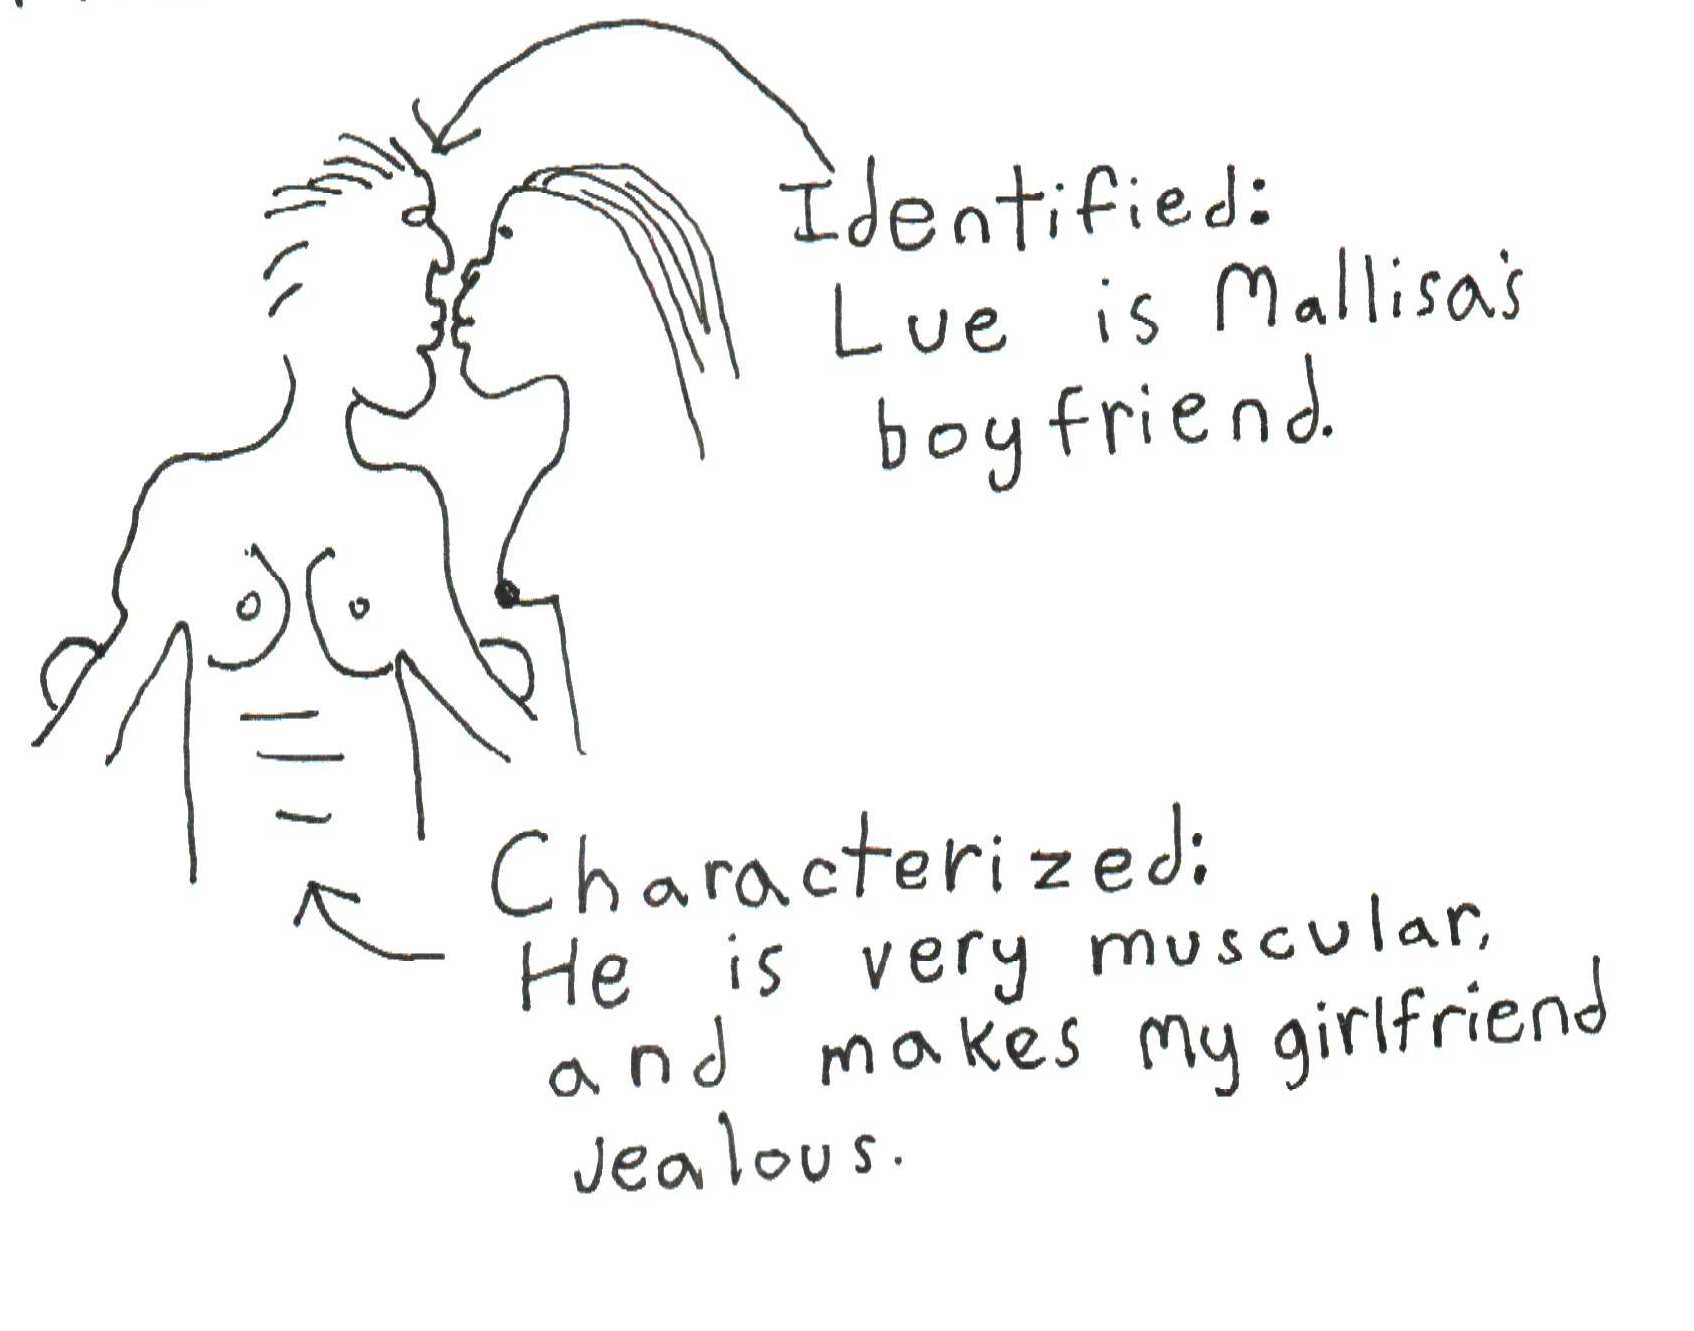 Identified:
Lue is Mallisa's
boyfriend.
Characterized:
He is very muscular,
and makes my girlfriend
jealous.